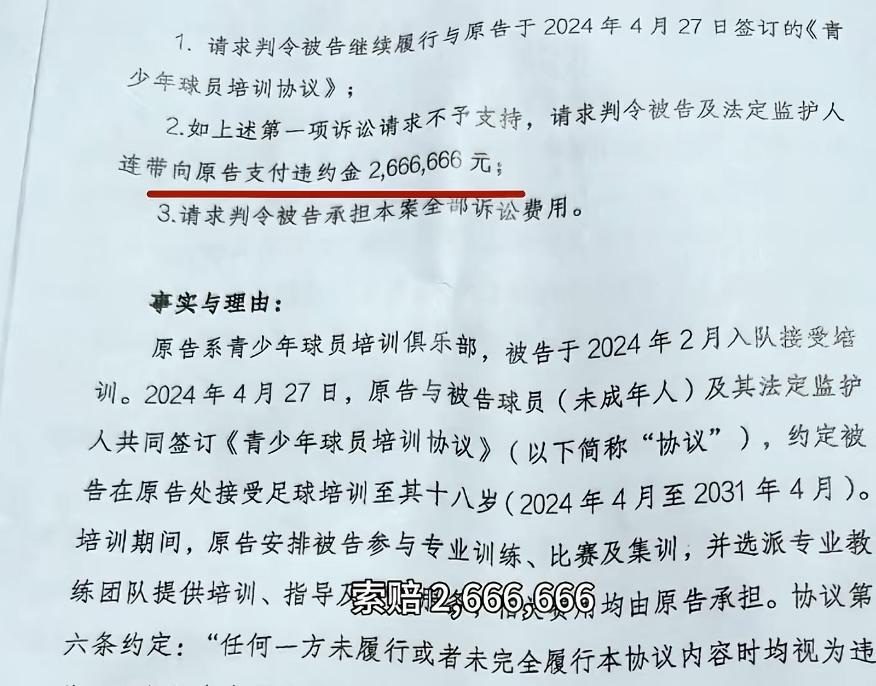 1. 请求判令被告继续履行与原告于 2024 年 4 月 27 日签订的《青
少年球员培训协议》；
2.如上述第一项诉讼请求不予支持，请求判令被告及法定监护人
连带向原告支付违约金 2,666,666 元；
3.请求判令被告承担本案全部诉讼费用。
事实与理由：
原告系青少年球员培训俱乐部，被告于 2024 年 2 月入队接受培
训。2024 年 4 月 27 日，原告与被告球员（未成年人）及其法定监护
人共同签订《青少年球员培训协议》（以下简称“协议”），约定被
告在原告处接受足球培训至其十八岁（2024 年 4 月至 2031 年 4 月）。
培训期间，原告安排被告参与专业训练、比赛及集训，并选派专业教
练团队提供培训、指导及 服务，相关费用均由原告承担。协议第
索赔 2,666,666
六条约定：“任何一方未履行或者未完全履行本协议内容时均视为违